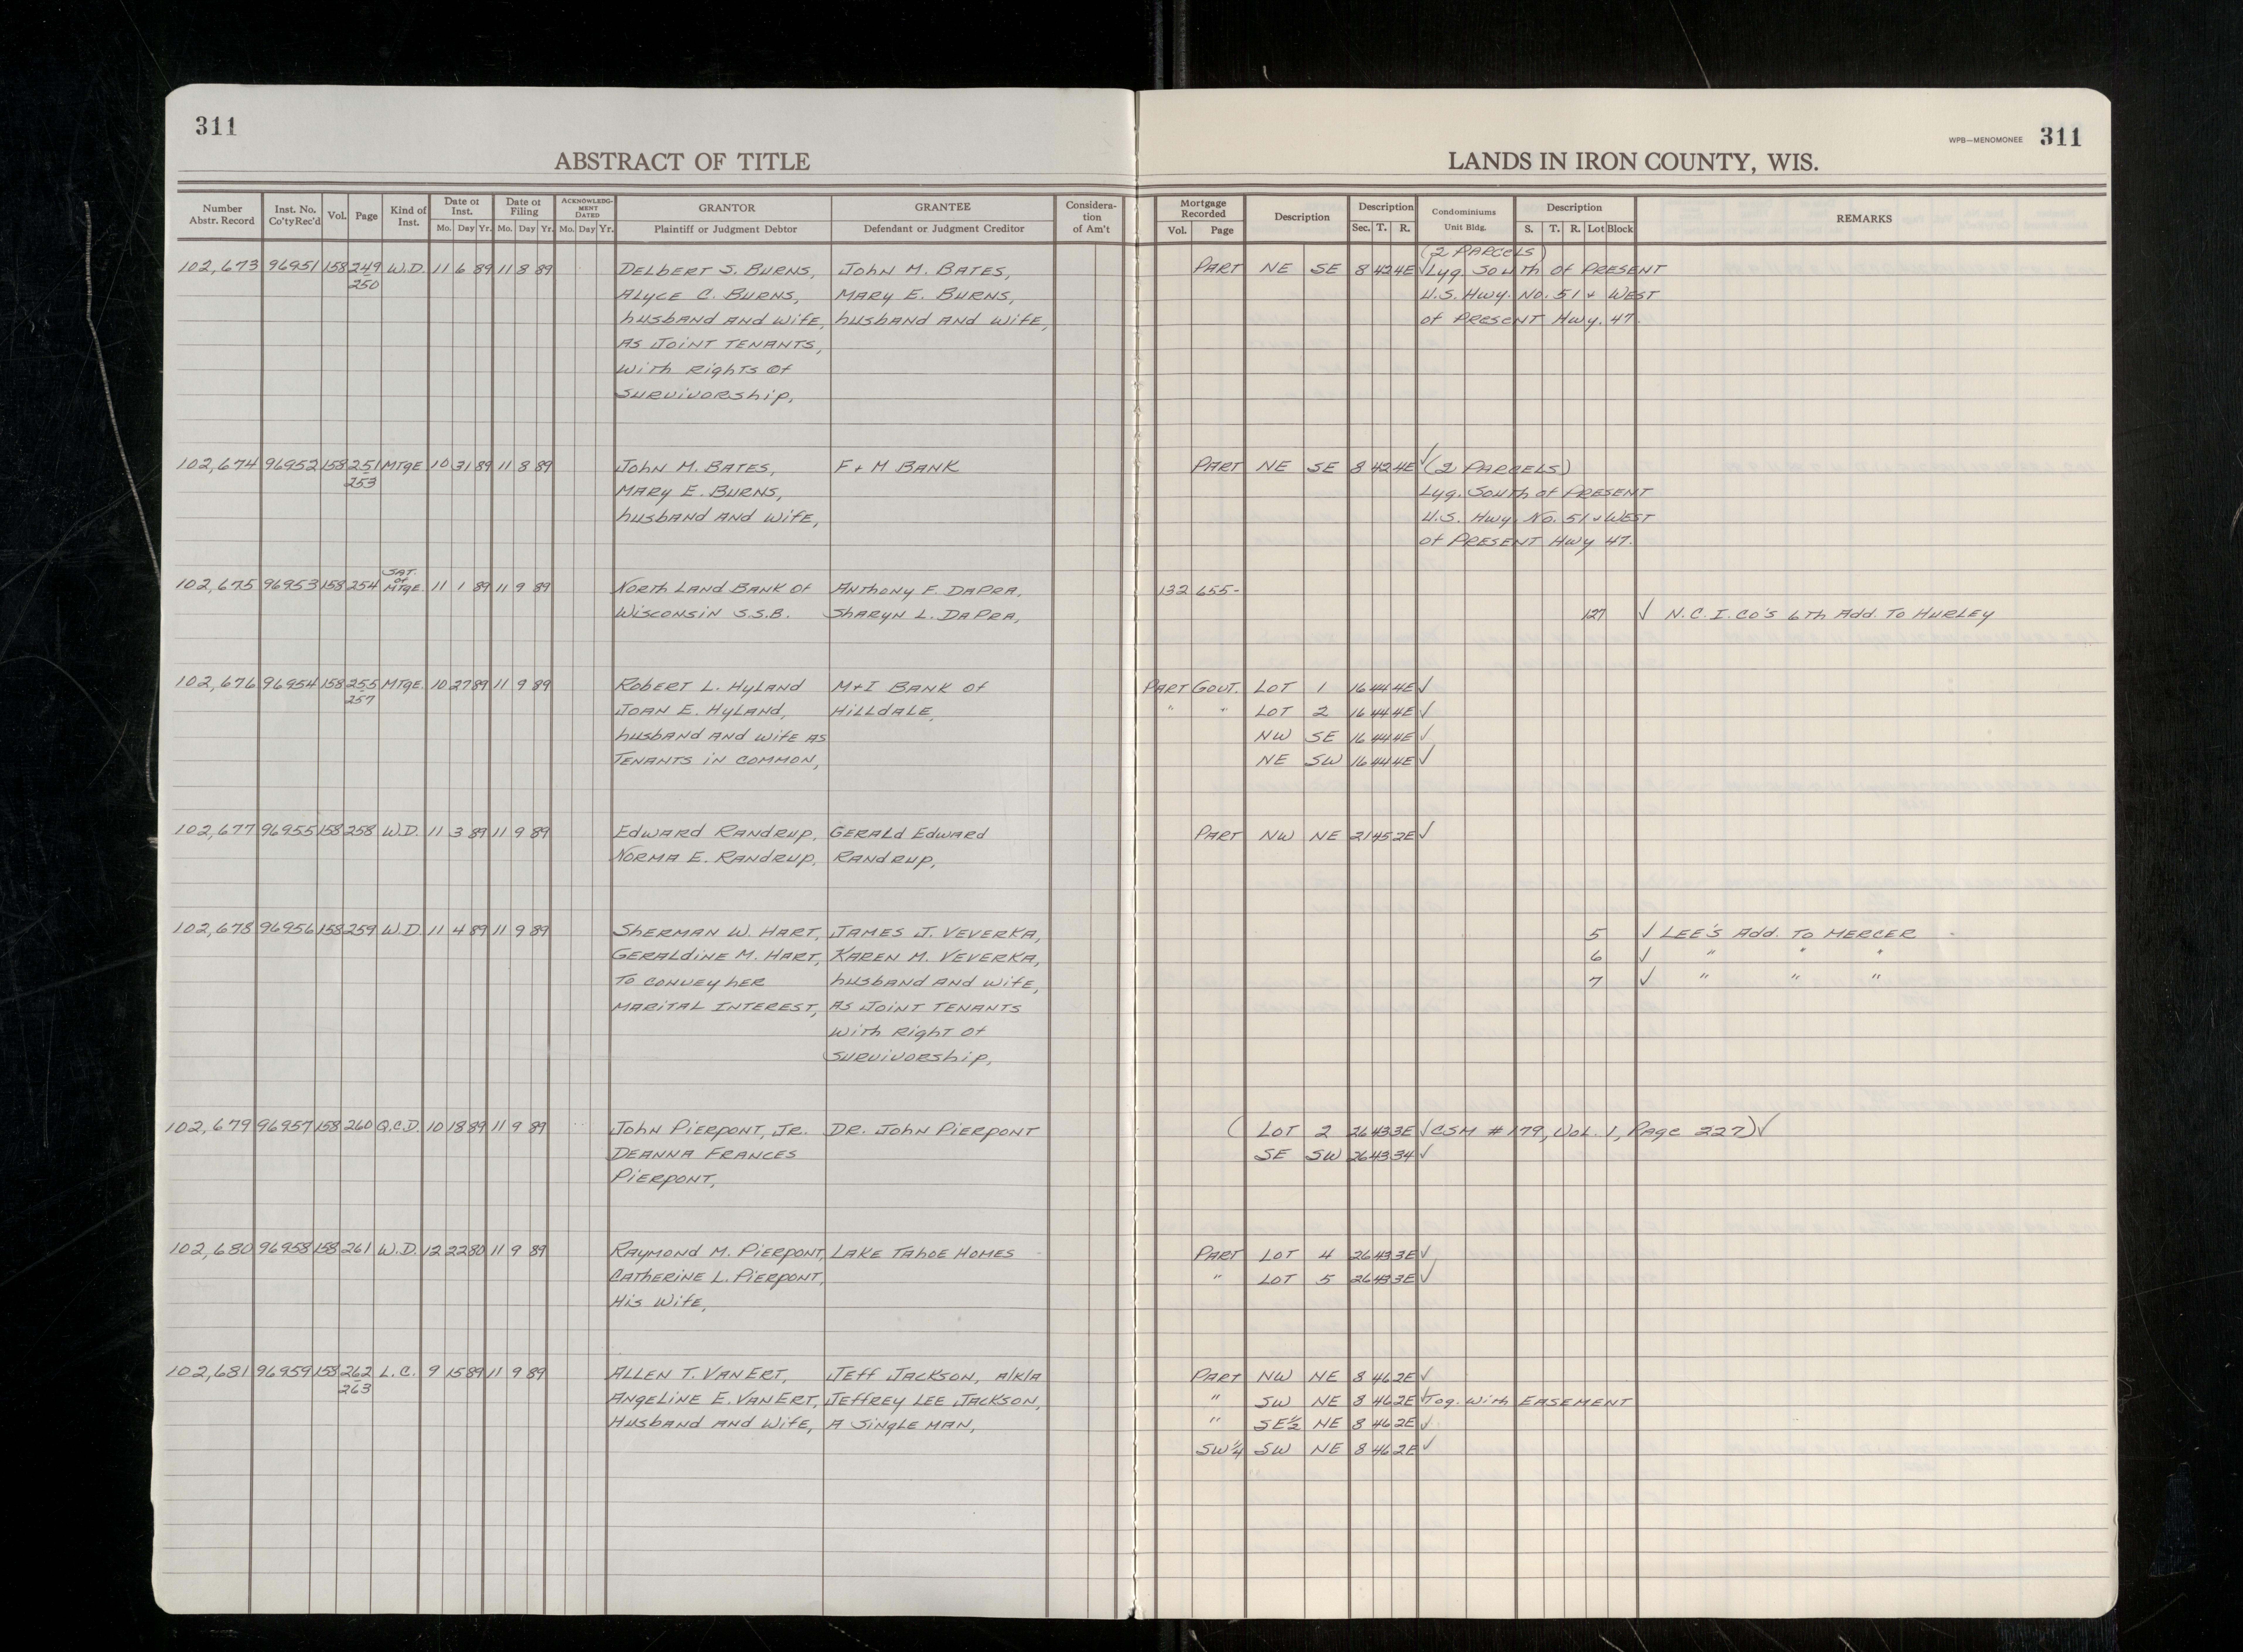 311
ABSTRACT OF TITLE
LANDS IN IRON COUNTY, WIS.
WPB—MENOMONEE 311
Number Abstr. Record Inst. No. Co'ty Rec'd Vol. Page Kind of Inst. Date of Inst. Mo. Day Yr. Date of Filing Mo. Day Yr. ACKNOWLEDGMENT DATED Mo. Day Yr. GRANTOR Plaintiff or Judgment Debtor GRANTEE Defendant or Judgment Creditor Consideration of Am't Mortgage Recorded Vol. Page Description Description Sec. T. R. Condominiums Unit Bldg. Description S. T. R. Lot Block REMARKS
(2 PARCELS)
102,673 96951 158 249 W.D. 11 6 89 11 8 89 DELBERT S. BURNS, JOHN M. BATES, PART NE SE 8 42 4E ✓ Lyg. South of PRESENT
250 ALYCE C. BURNS, MARY E. BURNS, U.S. Hwy. No. 51 + WEST
husband AND WIFE, husband AND WIFE, of PRESENT Hwy. 47.
AS JOINT TENANTS,
With Rights Of
Survivorship,
102,674 96952 158 251 MTGE 10 31 89 11 8 89 JOHN M. BATES, F + M BANK PART NE SE 8 42 4E ✓ (2 PARCELS)
253 MARY E. BURNS, Lyg. South of PRESENT
husband AND WIFE, U.S. Hwy. No. 51 + WEST
of PRESENT Hwy 47.
SAT. OF
102,675 96953 158 254 MTGE. 11 1 89 11 9 89 North Land BANK Of Anthony F. DAPRA, 132 655-
Wisconsin S.S.B. Sharyn L. DAPRA, 127 ✓ N.C.I. Co's 6th Add. To HURLEY
102,676 96954 158 255 MTGE. 10 27 89 11 9 89 Robert L. HYLAND M+I BANK Of PART GOVT. LOT 1 16 44 4E ✓
257 JOAN E. HYLAND, Hilldale, " " LOT 2 16 44 4E ✓
husband AND WIFE AS NW SE 16 44 4E ✓
TENANTS IN COMMON, NE SW 16 44 4E ✓
102,677 96955 158 258 W.D. 11 3 89 11 9 89 Edward RANDRUP, GERALD Edward PART NW NE 21 45 2E ✓
NORMA E. RANDRUP, RANDRUP,
102,678 96956 158 259 W.D. 11 4 89 11 9 89 SHERMAN W. HART, JAMES J. VEVERKA, 5 ✓ LEE'S Add. To MERCER
GERALDINE M. HART, KAREN M. VEVERKA, 6 ✓ " " "
TO CONVEY HER husband AND WIFE, 7 ✓ " " "
MARITAL INTEREST, AS JOINT TENANTS
With Right Of
Survivorship,
102,679 96957 158 260 Q.C.D. 10 18 89 11 9 89 JOHN PIERPONT, JR. DR. JOHN PIERPONT ( LOT 2 26 43 3E ✓ CSM #179, Vol. 1, Page 227) ✓
DEANNA FRANCES SE SW 26 43 34 ✓
PIERPONT,
102,680 96958 158 261 W.D. 12 22 80 11 9 89 RAYMOND M. PIERPONT, LAKE TAHOE HOMES PART LOT 4 26 43 3E ✓
CATHERINE L. PIERPONT, " LOT 5 26 43 3E ✓
His Wife,
102,681 96959 158 262 L.C. 9 15 89 11 9 89 ALLEN T. VANERT, JEFF JACKSON, A/K/A PART NW NE 8 46 2E ✓
263 ANGELINE E. VANERT, JEFFREY LEE JACKSON, " SW NE 8 46 2E ✓ Tog. With EASEMENT
Husband AND Wife, A Single MAN, " SE½ NE 8 46 2E ✓
SW¼ SW NE 8 46 2E ✓